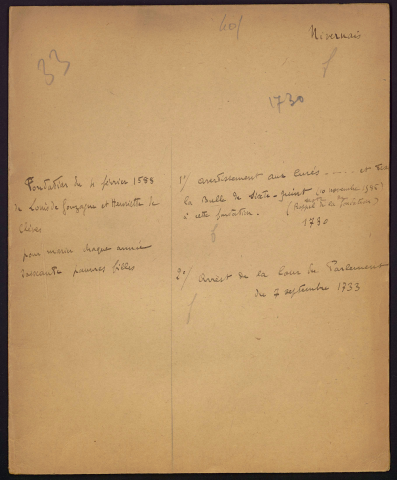 Nivernais
401
33
1730
Fondation du 4 février 1588
de Louis de Gonzague et Henriette de
Clèves
pour marier chaque année
soixante pauvres filles
1º/ avertissement aux Curés ..... et
la Bulle de Sixte-Quint (10 novembre 1586)
à cette fondation. (Rappel de la fondation)
1730
2º/ Arrest de la Cour du Parlement
du 7 septembre 1733